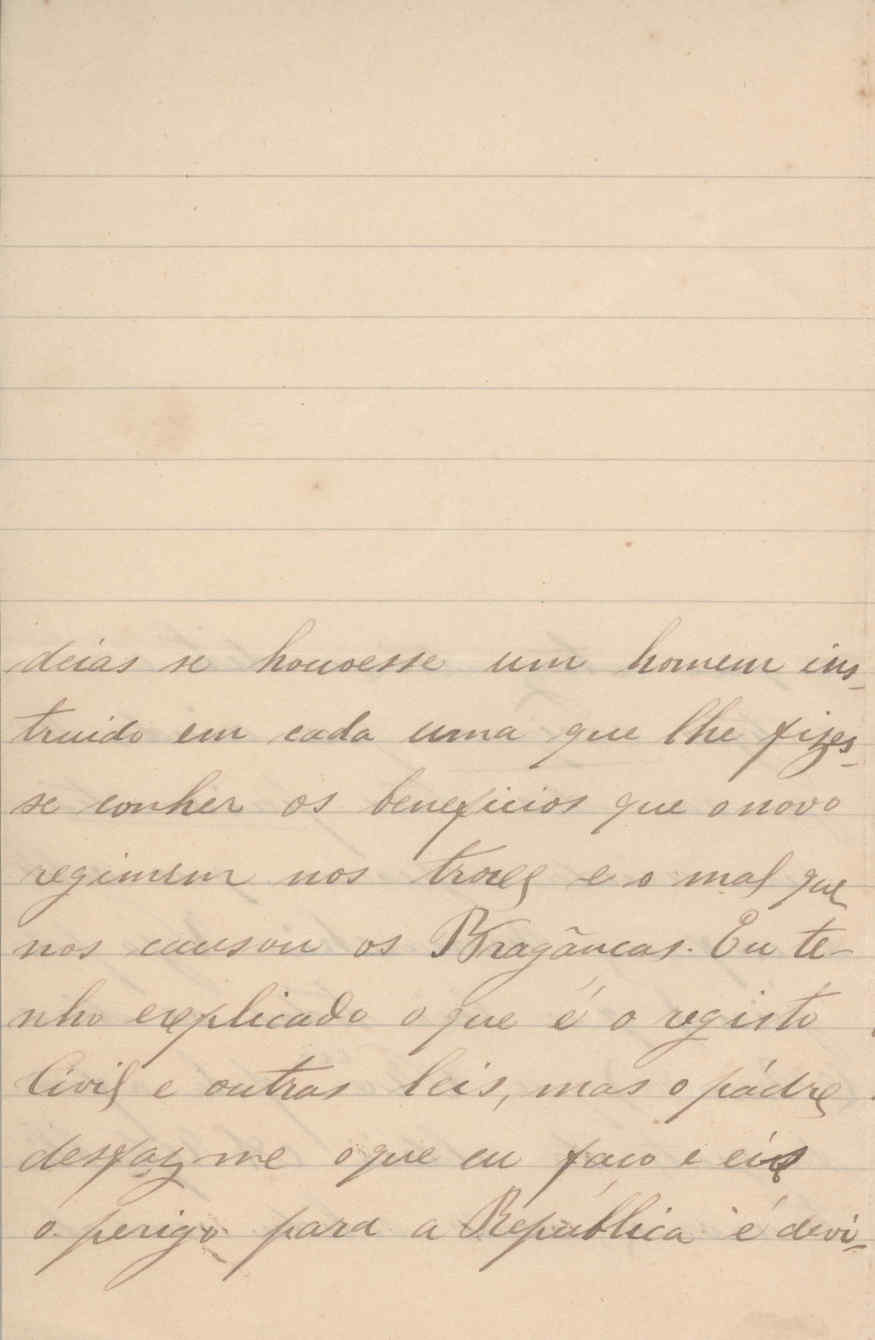 deias se houvesse um homem ins-
truido em cada uma que lhe fizes-
se conher os beneficios que o novo
regimem nos troceu e o mal que
nos causou os Bragãncas. Eu te-
nho explicado o que é o registo
Civil e outras leis, mas o pádre
desfaz me o que eu faco e eis
o perigo para a República é devi-